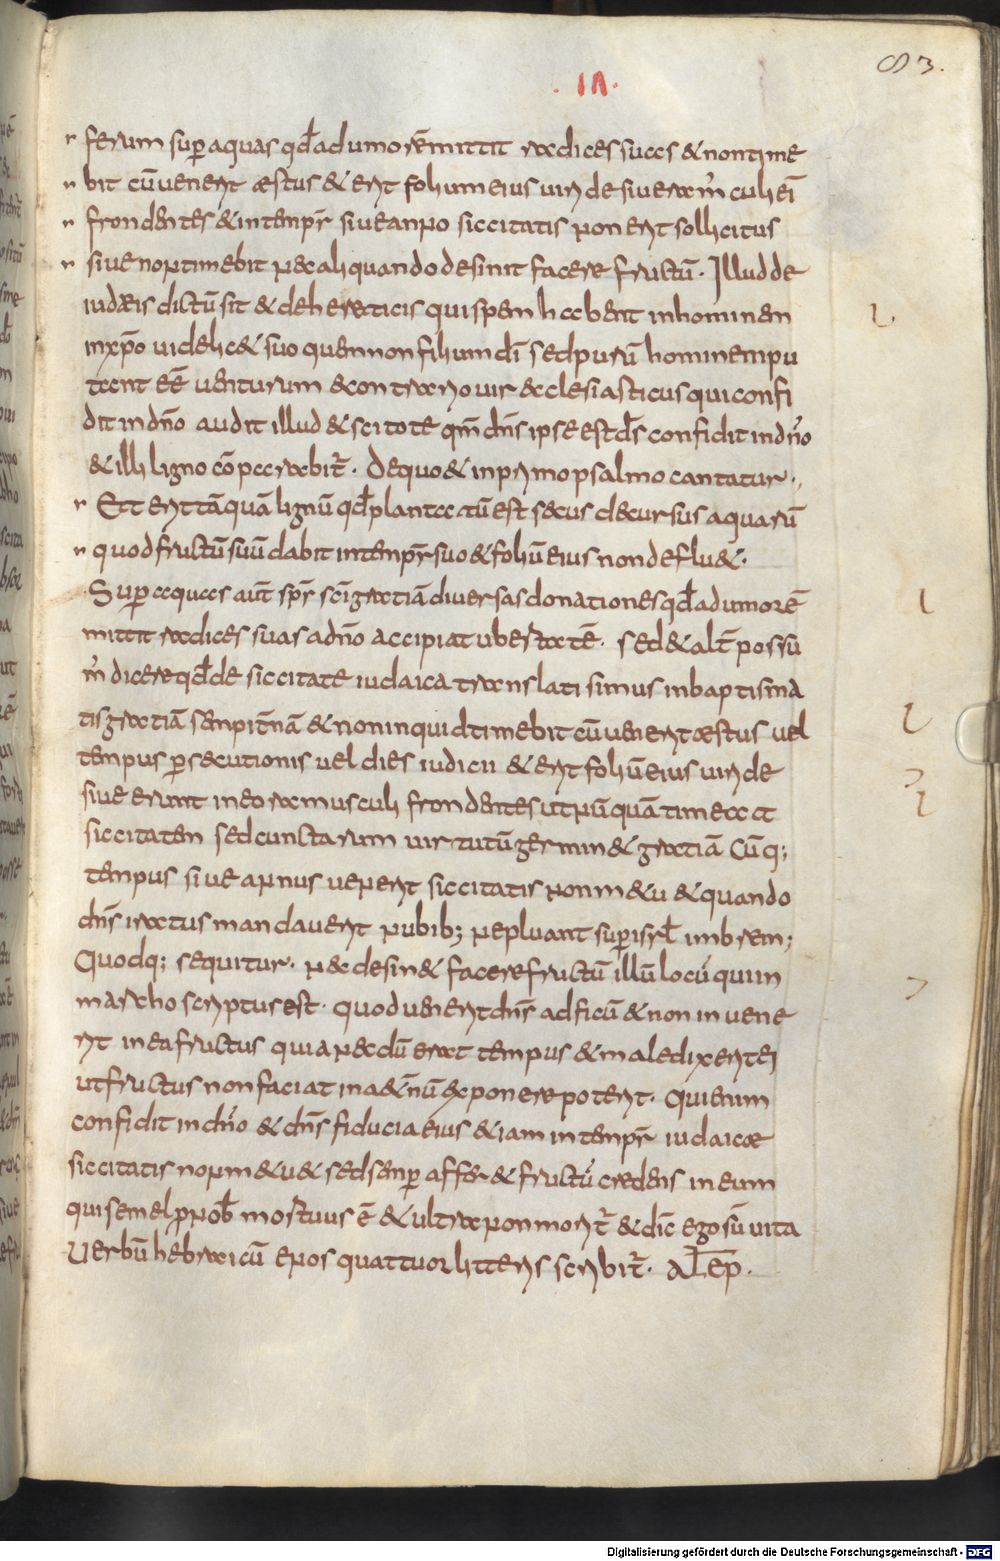 83.
· IΛ ·
ferum sup̄ aquas qđ ad umorē mittit radices suas & non time
bit cū uenerit æstus & erit folium eius uiride siue ramusculi ei
frondentes & in tempr̄ siue anno siccitatis non erit sollicitus
siue non timebit nec aliquando desinit facere fructū · Illud de
iudæis dictū sit & de hereticis qui spem habent in hominem
in xp̄o uidelic& suo quem non filium dī sed purū hominem pu
tant eē uenturum & contrario uir ecclesiasticus qui confi
dit in dn̄o audit illud & scitote qm̄ dn̄s ipse est d̄s confidit in dn̄o
& illi ligno cōparabit̄ · De quo & in primo psalmo cantatur ·,
Et erit tāquā lignū qđ plantatū est secus decursus aquarū
quod fructū suū dabit in tempr̄ suo & foliū eius non deflu& ·
Sup̄ aquas aut̄ spr̄ sc̄i gratiā diuersas donationes qđ ad umorē
mittit radices suas a dn̄o accipiat ubertatē · sed & alt̄ possu
m̄ dicere qđ de siccitate iudaica translati simus in baptisma
tis gratiā sempit̄nā & non inquid timebit cū uenerit æstus uel
tempus p̄secutionis uel dies iudicii & erit foliū eius uiride
siue erunt in eo ramusculi frondentes ut nūquā timeat
siccitatem sed cunctarum uirtutū germin& gratiā Cū q;
tempus siue annus uenerit siccitatis non m&u& quando
dn̄s iratus mandauerit nubib; ne pluant sup̄ isrl̄ imbrem;
Quodq; sequitur · nec desin& facere fructū illū locū qui in
marcho scriptus est · quod uenerit dn̄s ad ficū & non inuene
rit in ea fructus quia necdū erat tempus & maledixerit ei
ut fructus non faciat in æt̄nū exponere poterit · Qui enim
confidit in dn̄o & dn̄s fiducia eius & iam in tempr̄ iudaicæ
siccitatis non m&u& sed semp̄ affer& fructū credens in eum
qui semel p̄ nob̄ mortuus ē & ultra non morit̄ & dic̄ ego sū uita
Uerbū hebraicū enos quattuor litteris scribit̄ · alep̄ ·
Digitalisierung gefördert durch die Deutsche Forschungsgemeinschaft - DFG